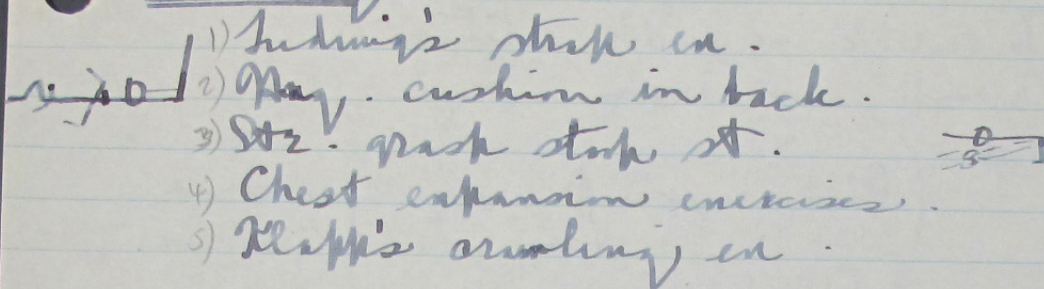 1) Ludwig's strap ex.
2) cushion in back.
3) Str. grasp stoop st.
4) Chest expansion exercises.
5) Klapp's crawling ex.